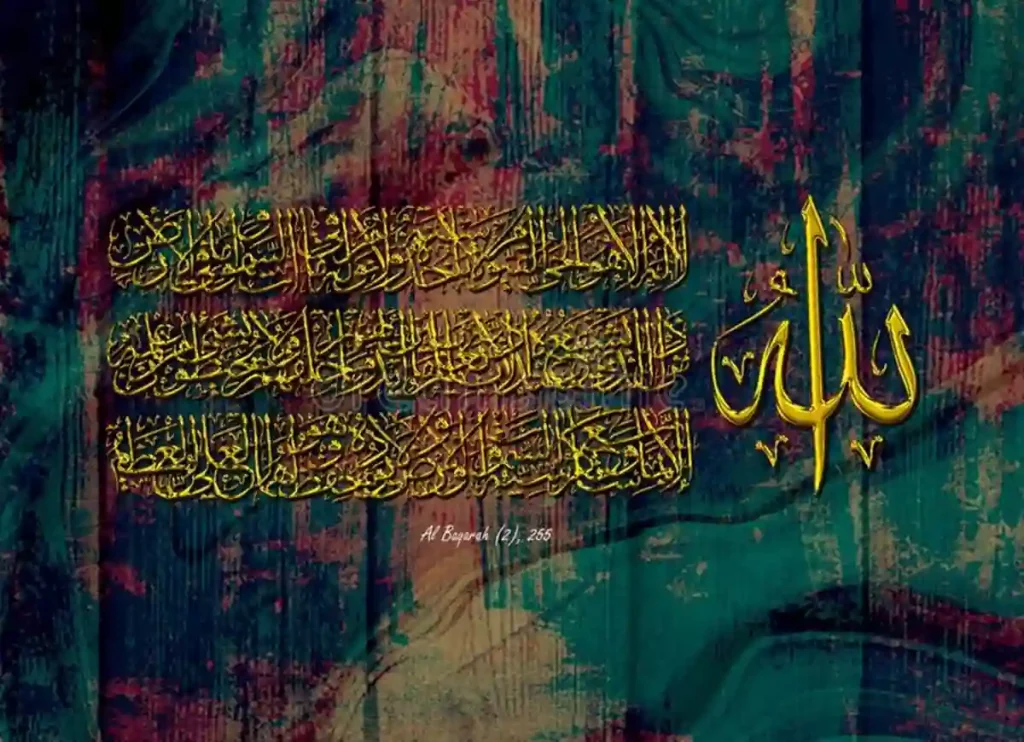 الله
لا إله إلا هو الحي القيوم لا تأخذه سنة ولا نوم له ما في السموات وما في الأرض
من ذا الذي يشفع عنده إلا بإذنه يعلم ما بين أيديهم وما خلفهم ولا يحيطون بشيء من علمه
إلا بما شاء وسع كرسيه السموات والأرض ولا يؤده حفظهما وهو العلي العظيم
Al Baqarah (2), 255